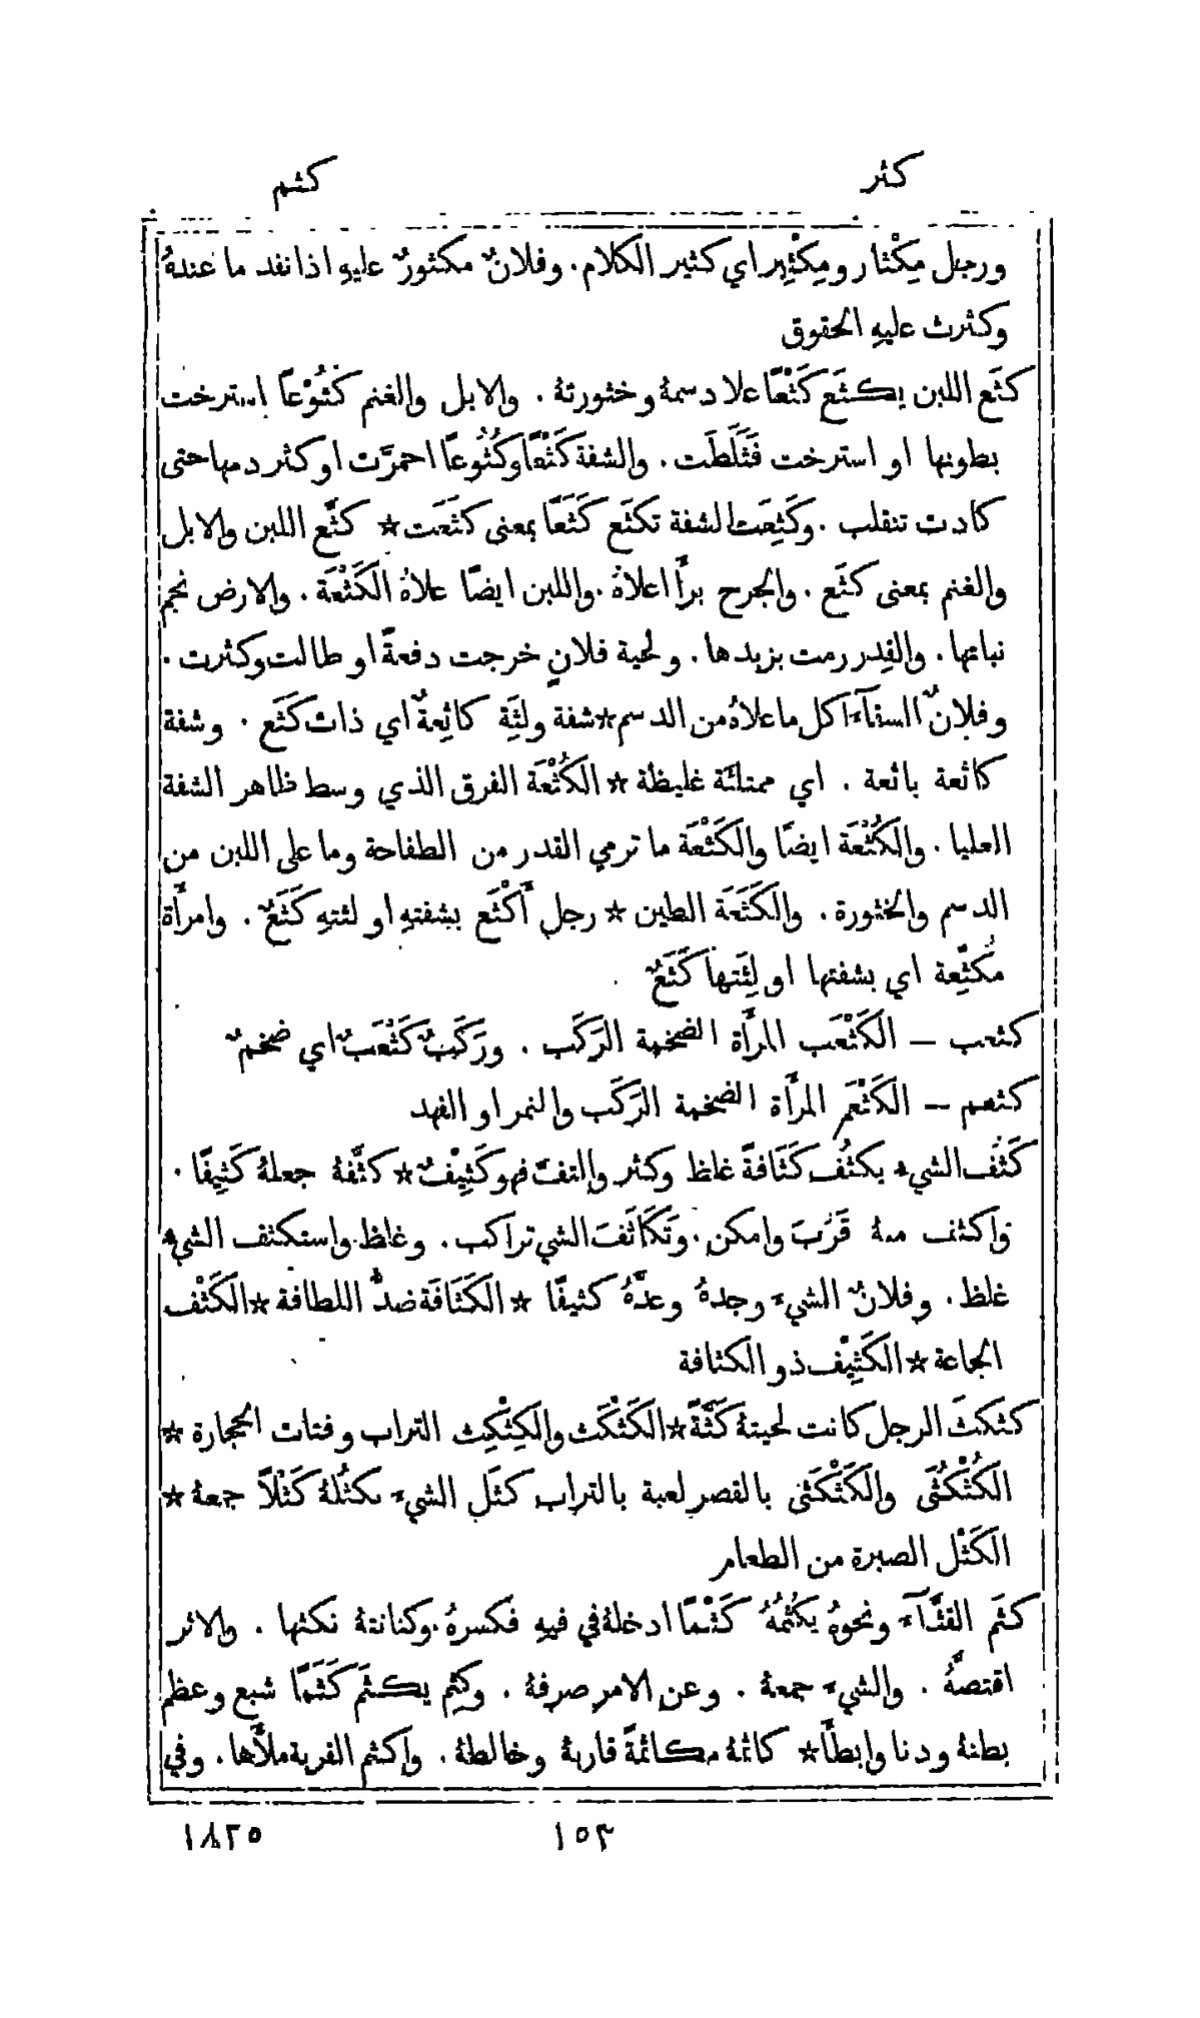 كثر
كثم
ورجل مِكْثار ومِكْثِير اي كثير الكلام. وفلانٌ مكثورٌ عليهِ اذا نفد ما عندهُ
وكثرت عليهِ الحقوق
كثَع اللبن يكثَع كَثْعًا علا دسمهُ وخثورتهُ . والابل والغنم كُثُوْعًا استرخت
بطونها او استرخت فَثَلَطَت . والشفة كَثْعًا وكُثُوعًا احمرَّت او كثر دمها حتى
كادت تنقلب . وكَثِعَت الشفة تكثَع كَثَعًا بمعنى كثَعَت * كثَّع اللبن والابل
والغنم بمعنى كثَع . والجرح برأَ اعلاهُ . واللبن ايضًا علاهُ الكَثْعَة . والارض نجم
نباتها . والقِدر رمت بزبدها . ولحية فلانٍ خرجت دفعةً او طالت وكثرت .
وفلانٌ السقآءَ اكل ما علاهُ من الدسم * شفة ولِثَة كاثِعةٌ اي ذات كَثَع . وشفة
كاثعة باثعة . اي ممتلئة غليظة * الكُثْعَة الفرق الذي وسط ظاهر الشفة
العليا . والكُثْعَة ايضًا والكَثْعَة ما ترمي القدر من الطفاحة وما على اللبن من
الدسم والخثورة . والكَثَعَة الطين * رجل أَكْثَع بشفتهِ او لثتهِ كَثَعٌ . وامرأَة
مُكثِّعة اي بشفتها او لِثَتها كَثَعٌ .
كثعب – الكَثْعَب المرأَة الضخمة الرَكَب . ورَكَبٌ كَثْعَبٌ اي ضخمٌ
كثعم – الكَثْعَم المرأَة الضخمة الرَكَب والنمر او الفهد
كَثُف الشيءُ يكثُف كَثَافةً غلظ وكثر والتفَّ فهو كَثِيْفٌ * كثَّفهُ جعلهُ كَثِيفًا .
واكثف منهُ قَرُبَ وامكن . وتَكَاثَفَ الشي تراكب . وغلظ . واستكثف الشيءُ
غلظ . وفلانٌ الشيءَ وجدهُ وعدَّهُ كثيفًا * الكَثَافَة ضدُّ اللطافة * الكَثْف
الجاعة * الكَثِيْف ذو الكثافة
كثكثَ الرجل كانت لحيتهُ كَثَّةً * الكَثْكَث والكِثْكِث التراب وفتات الحجارة *
الكُثْكُثَى والكَثْكَثى بالقصر لعبة بالتراب كثَل الشيءَ يكثُلهُ كَثْلاً جمعهُ *
الكَثْل الصبرة من الطعام
كثَم القثَّآءَ ونحوهُ يكْثُمُهُ كَثْمًا ادخلهُ في فيهِ فكسرهُ . وكنانتهُ نكثها . والاثر
اقتصَّهُ . والشيءَ جمعهُ . وعن الامر صرفهُ . وكثِم يكثَم كَثَمًا شبع وعظم
بطنهُ ودنا وابطأَ * كاثمهُ مكاثمةً قاربهُ وخالطهُ . واكثم القربة ملأَها . وفي
١٥٣
١٨٢٥